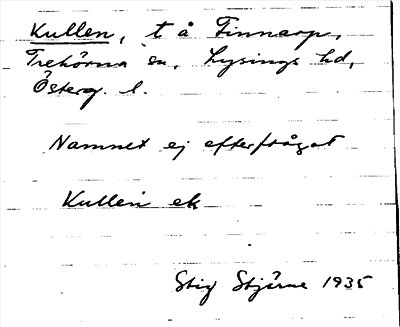 Kullen, t å Finnarp,
Trehörna sn, Lysings hd,
Österg. l.
Namnet ej efterfrågat
Kullen ek
Stig Stjärne 1935